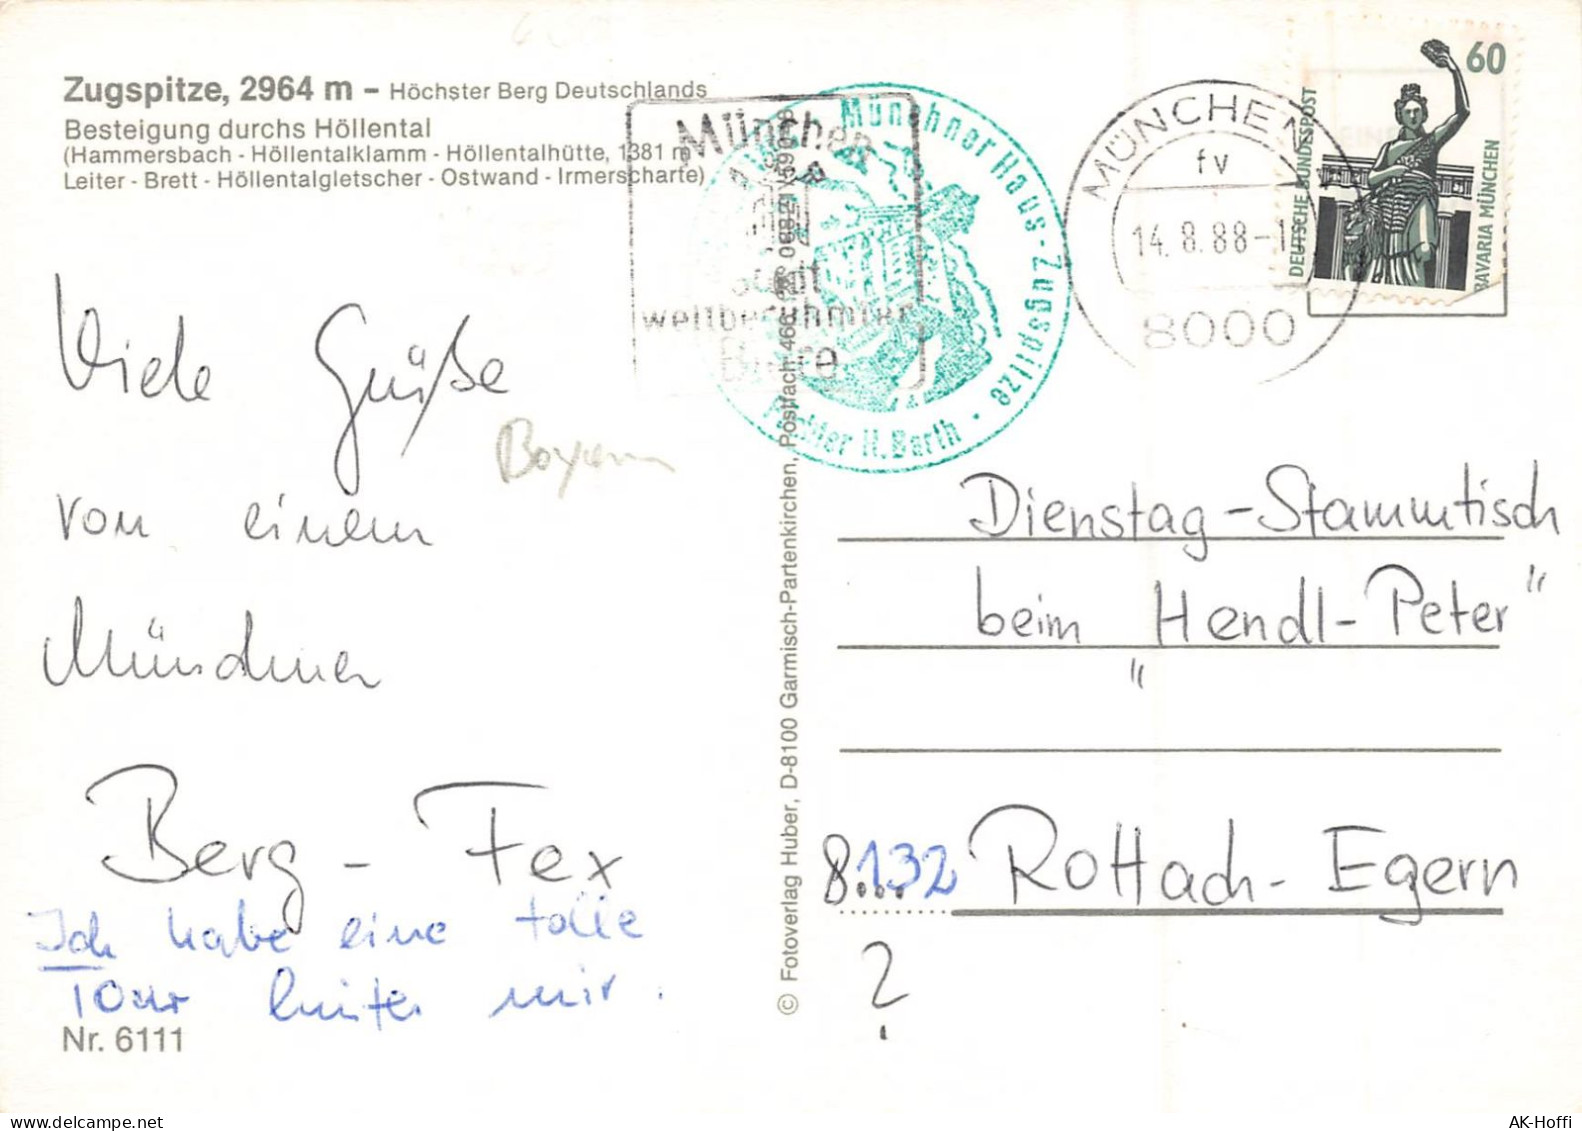 Zugspitze, 2964 m – Höchster Berg Deutschlands
Besteigung durchs Höllental
(Hammersbach - Höllentalklamm - Höllentalhütte, 1381 m
Leiter - Brett - Höllentalgletscher - Ostwand - Irmerscharte)
München
Stadt
weltberühmter
Biere
Münchner Haus - Zugspitze
Pächter H. Barth
MÜNCHEN
fv
14.8.88-1
8000
60
DEUTSCHE BUNDESPOST
BAVARIA MÜNCHEN
Viele Grüße
Bayern
von einem
Münchner
Berg - Fex
Ich habe eine tolle
Tour hinter mir.
Nr. 6111
© Fotoverlag Huber, D-8100 Garmisch-Partenkirchen, Postfach 466
Dienstag-Stammtisch
beim „Hendl-Peter“
8.132 Rottach-Egern
?
www.delcampe.net
AK-Hoffi